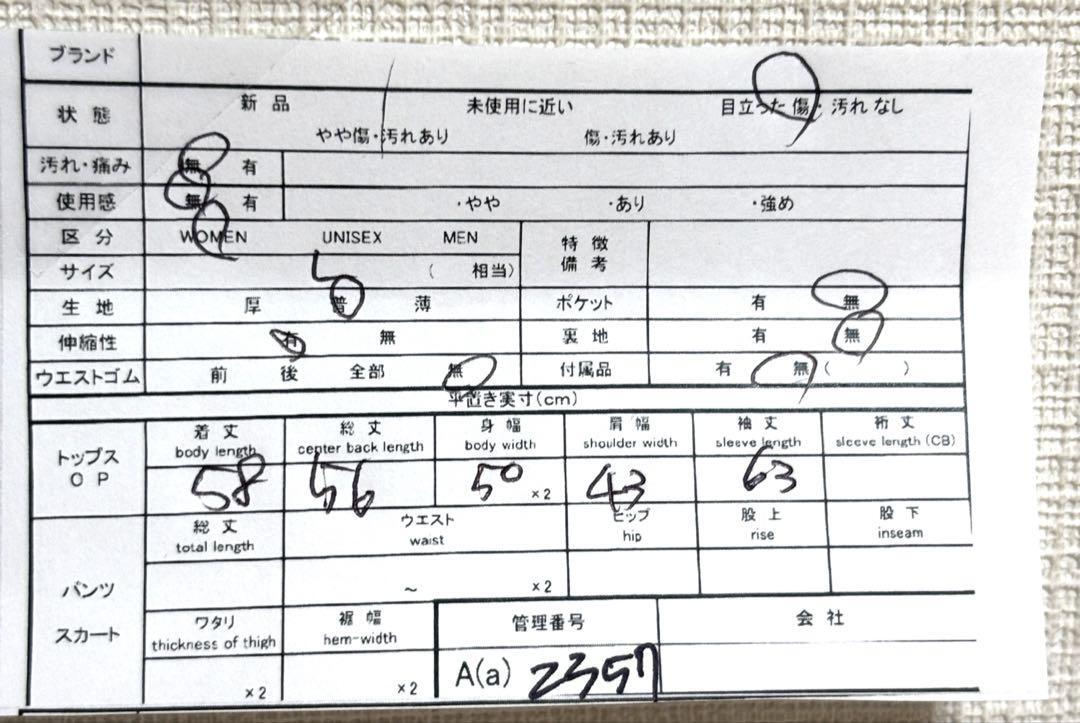 ブランド
状態 新品 未使用に近い 目立った傷・汚れなし
やや傷・汚れあり 傷・汚れあり
汚れ・痛み 無 有
使用感 無 有 ・やや ・あり ・強め
区分 WOMEN UNISEX MEN 特徴
備考
サイズ ( 相当)
生地 厚 普 薄 ポケット 有 無
伸縮性 有 無 裏地 有 無
ウエストゴム 前 後 全部 無 付属品 有 無 ( )
平置き実寸(cm)
トップス
OP
着丈 総丈 身幅 肩幅 袖丈 裄丈
body length center back length body width shoulder width sleeve length sleeve length (CB)
58 56 50 ×2 43 63
パンツ
スカート
総丈 ウエスト ヒップ 股上 股下
total length waist hip rise inseam
~ ×2
ワタリ 裾幅 管理番号 会社
thickness of thigh hem-width
×2 ×2 A(a) 2357